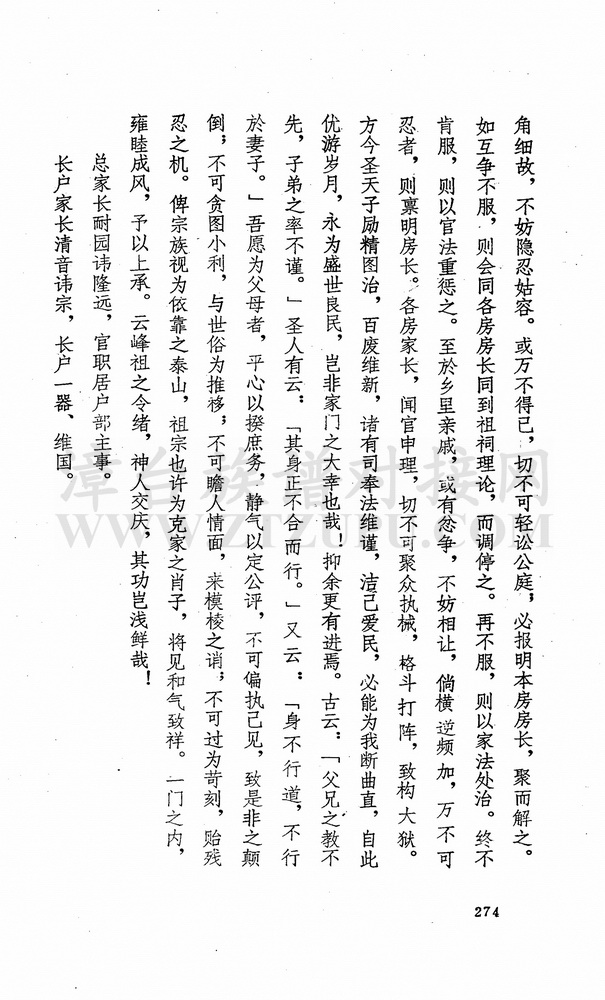 角细故，不妨隐忍姑容。或万不得已，切不可轻讼公庭；必报明本房房长，聚而解之。
如互争不服，则会同各房房长同到祖祠理论，而调停之。再不服，则以家法处治。终不
肯服，则以官法重惩之。至於乡里亲戚，或有忿争，不妨相让，倘横逆频加，万不可
忍者，则禀明房长。各房家长，闻官申理，切不可聚众执械，格斗打阵，致构大狱。
方今圣天子励精图治，百废维新，诸有司奉法维谨，洁己爱民，必能为我断曲直，自此
优游岁月，永为盛世良民，岂非家门之大幸也哉！抑余更有进焉。古云：「父兄之教不
先，子弟之率不谨。」圣人有云：「其身正不合而行。」又云：「身不行道，不行
於妻子。」吾愿为父母者，平心以揆庶务，静气以定公评，不可偏执己见，致是非之颠
倒；不可贪图小利，与世俗为推移；不可瞻人情面，来模棱之诮；不可过为苛刻，贻残
忍之机。俾宗族视为依靠之泰山，祖宗也许为克家之肖子，将见和气致祥。一门之内，
雍睦成风，予以上承。云峰祖之令绪，神人交庆，其功岂浅鲜哉！
总家长耐园讳隆远，官职居户部主事。
长户家长清音讳宗，长户一器、维国。
274
漳台族谱对接网
WWW.ZTZUPU.COM